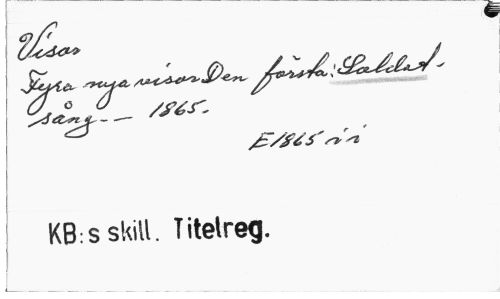 Visor
Fyra nya visor Den första: Soldat-
sång. -- 1865.
E1865 ii
KB:s skill. Titelreg.